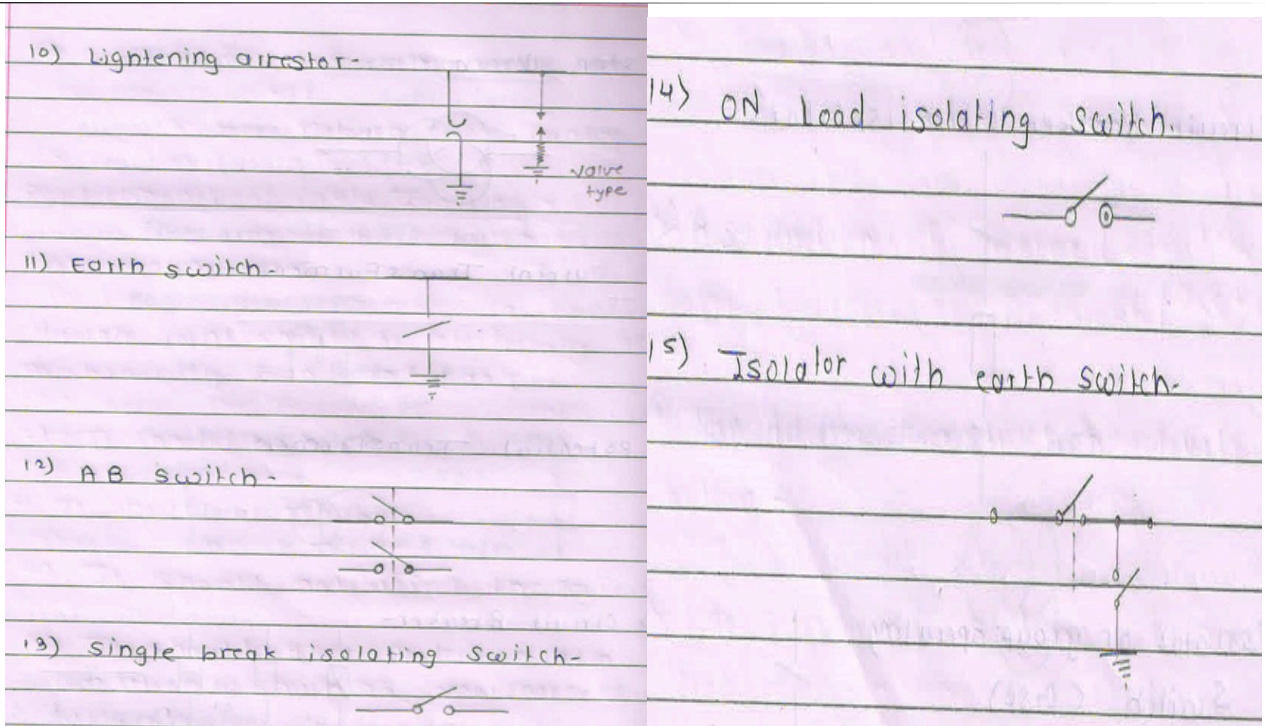 10) Lightening arrestor-
valve
type
11) Earth switch-
12) AB switch-
13) Single break isolating Switch-
14) ON Load isolating switch.
15) Isolator with earth switch.